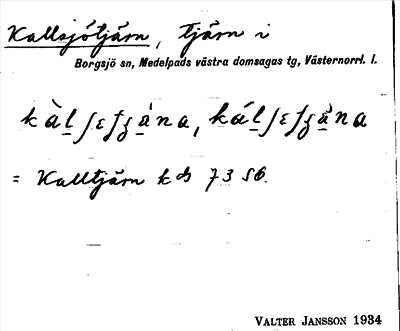 Kallsjötjärn, tjärn i
Borgsjö sn, Medelpads västra domsagas tg, Västernorrl. l.
= Kalltjärn k ds 73 S6.
VALTER JANSSON 1934